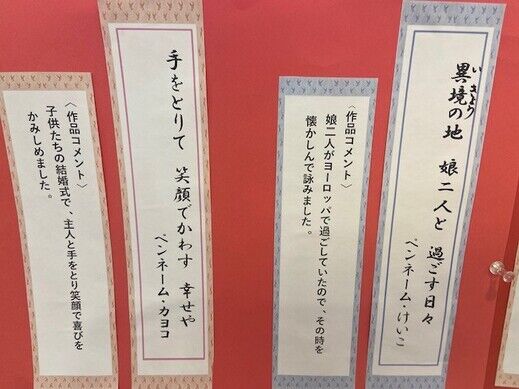 いきょう
異境の地　娘二人と　過ごす日々
ペンネーム・けいこ
〈作品コメント〉
娘二人がヨーロッパで過ごしていたので、その時を
懐かしんで詠みました。
手をとりて　笑顔でかわす　幸せや
ペンネーム・カヨコ
〈作品コメント〉
子供たちの結婚式で、主人と手をとり笑顔で喜びを
かみしめました。